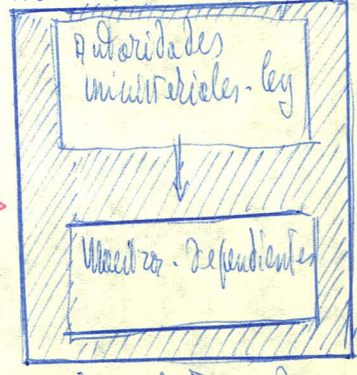 Autoridades
ministeriales - ley
Maestros - dependientes